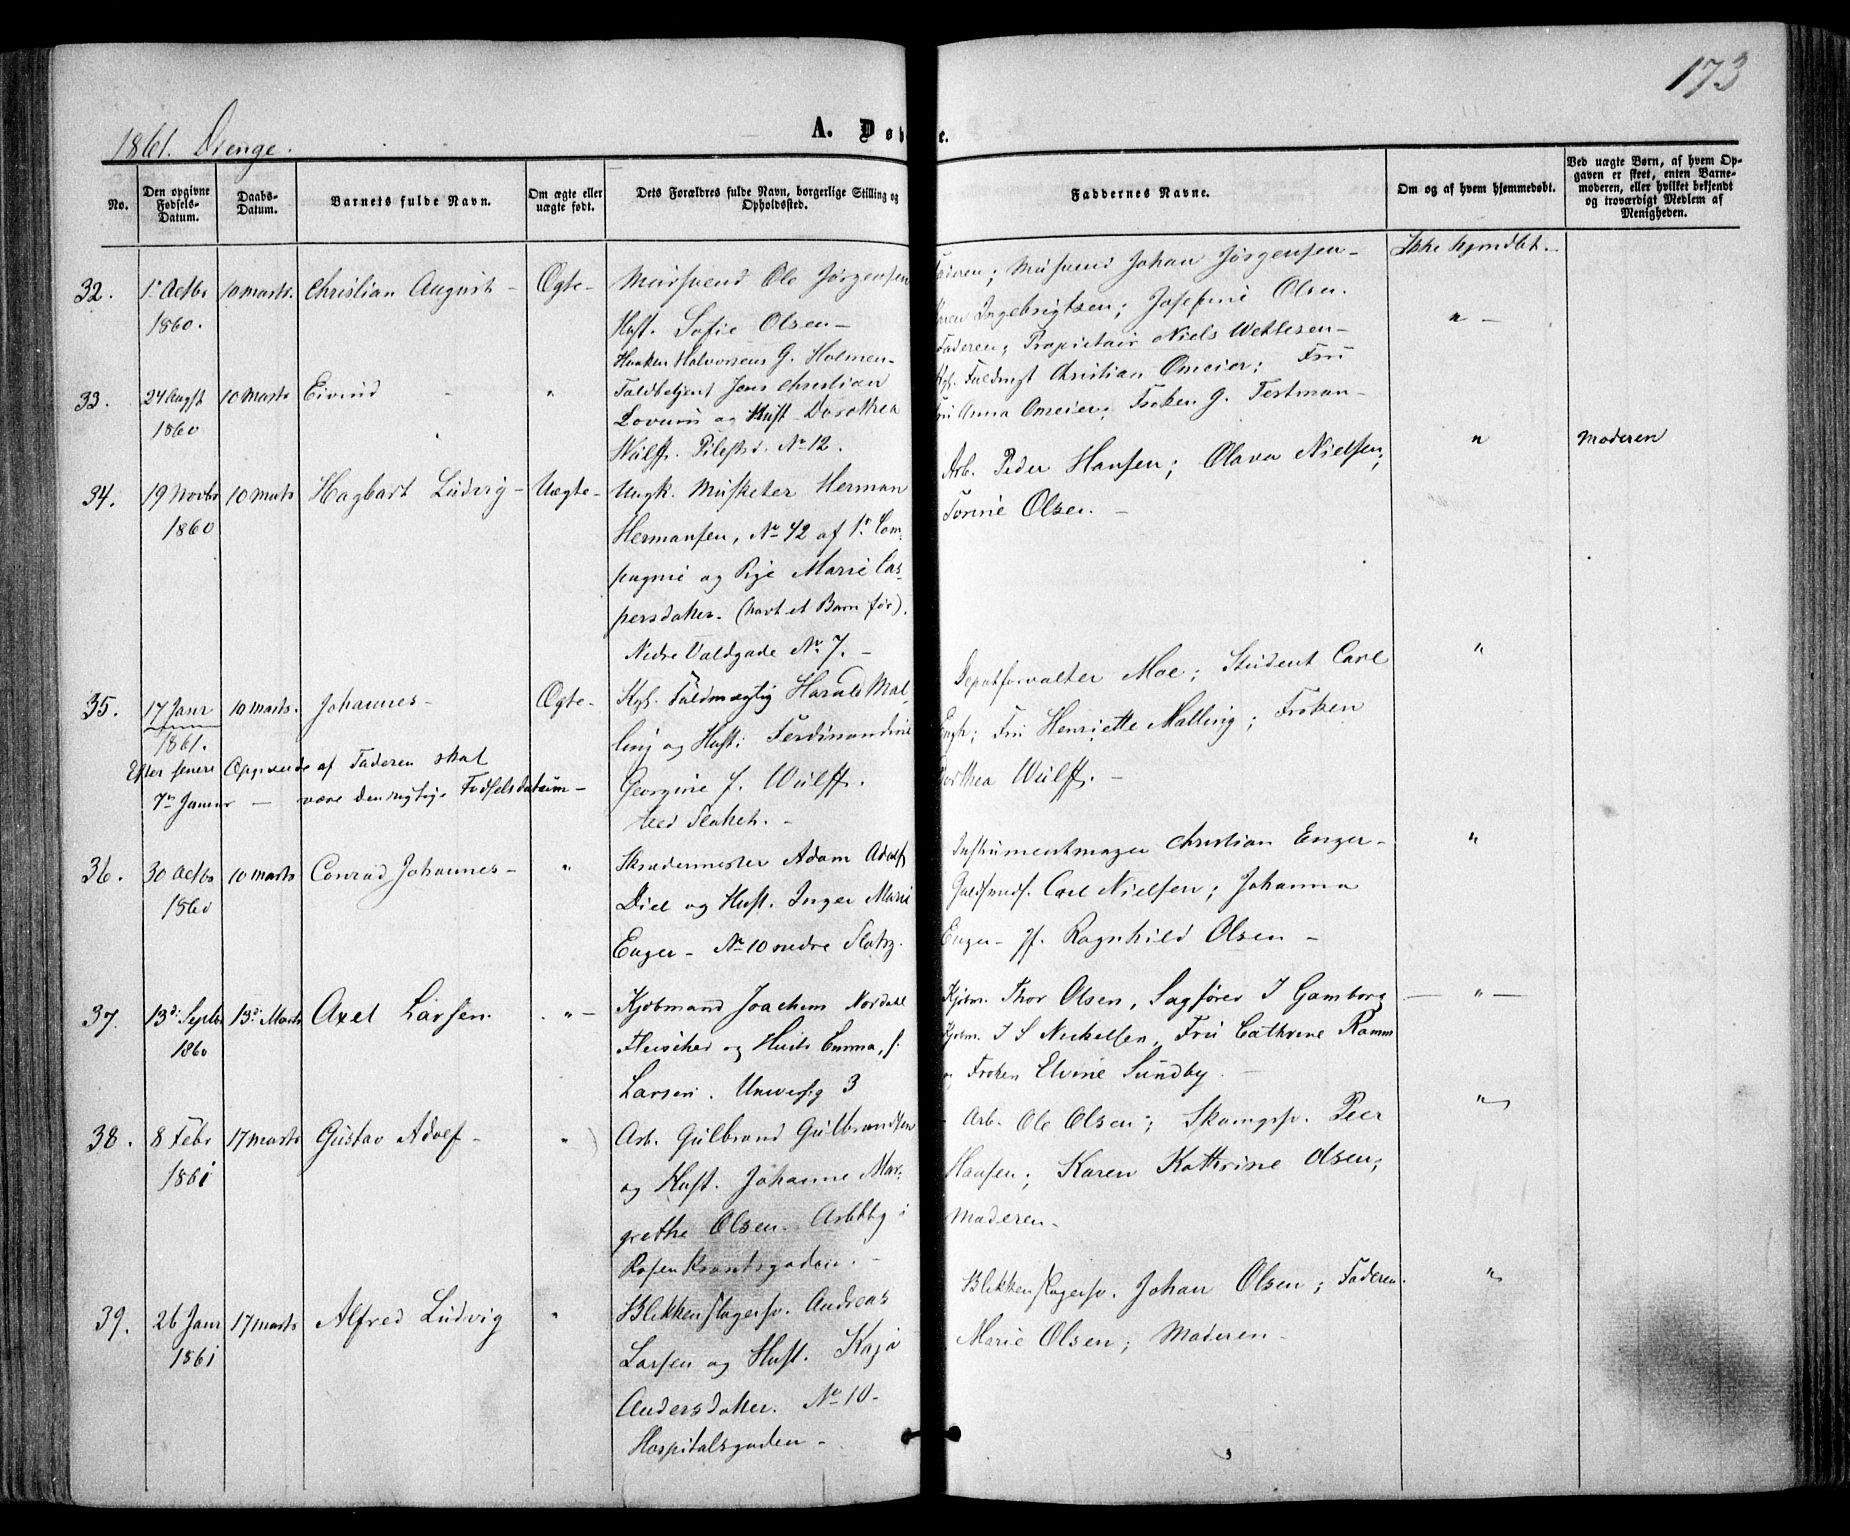 173
1861. Drenge.
A. Døb e.
No.
Den opgivne Fødsels-Datum.
Daabs-Datum.
Barnets fulde Navn.
Om ægte eller uægte født.
Dets Forældres fulde Navn, borgerlige Stilling og Opholdssted.
Faddernes Navne.
Om og af hvem hjemmedøbt.
Ved uægte Børn, af hvem Opgaven er skeet, enten Barnemoderen, eller hvilket bekjendt og troværdigt Medlem af Menigheden.
32. 1ste Octbr 10 Marts. Christian August - Ægte - Muursvend Ole Jørgensen
1860. Hust. Sofie Olsen -
Haaken Halvorsens G. Holmen -
Faderen; Mursvend Johan Jørgensen - Ikke hjmdbt. -
Karen Ingebrigtsen; Josefine Olsen.
33. 24 Augst 10 Marts Eivind - " Toldbetjent Jens Christian
1860 Lovum og Hust Dorothea
Wulff. Pilestr. No 12.
Faderen; Propietair Niels Wettesen - " -
Kgl. Fuldmgt Christian Omeier; Fru
Fru Anna Omeier; Frøken G. Testman -
34. 19 Novbr 10 Marts Hagbart Ludvig - Uægte - Ungk. Musketer Herman
1860 Hermansen, No 42 af 1r. Com-
pagnie og Pige Marie Cas-
persdatter. (havt et Barn før).
Nedre Voldgade No 7. -
Arb. Peder Hansen; Olava Nielsen; " Moderen
Torine Olsen. -
35. 17 Janr 10 Marts. Johannes - Ægte - Kgl. Fuldmægtig Harald Mal-
1861. ling og Hust: Ferdinandine
Efter senere Opgivende af Faderen skal
7de Januar - være den rigtige Fødselsdatum -
Georgine f. Wulff.
ved Slottet. -
Depotforvalter Moe; Student Carl "
Engh; Fru Henriette Malling; Frøken
Dorthea Wulff. -
36. 30 Octbr 10 Marts Conrad Johannes - " Skrædermester Adam Adolf
1860 Diel og Hust. Inger Marie
Enger - No 10 nedre Slotsg.
Instrumentmager Christian Enger - "
Guldsmds. Carl Nielsen; Johanna
Enger - Jf. Ragnhild Olsen -
37. 13de Septbr 13de Marts Axel Larsen. " - Kjøbmand Joachim Nordahl
1860 Fleischer og Hustr Emma, f.
Larsen. Universg 3
Kjøbm. Thor Olsen, Sagfører I Gamborg - " -
Kjøbm. I S Nickelsen, Fru Cathrine Ramm
og Frøken Elvine Sundby -
38. 8 Febr 17 Marts Gustav Adolf - " Arb. Gulbrand Gulbrandsen
1861 og Hust. Johanne Mar-
grethe Olsen. Arbbbg i
Rosenkrantsgaden. -
Arb. Ole Olsen; Skomgsv. Peer "
Hansen; Karen Kathrine Olsen;
Moderen -
39. 26 Janr 17 Marts Alfred Ludvig " Blikkenslagersv. Andreas
1861 Larsen og Hust. Kaja
Andersdatter. No 10 -
Hospitalsgaden -
Blikkenslagersv. Johan Olsen; Faderen. "
Marie Olsen; Moderen -